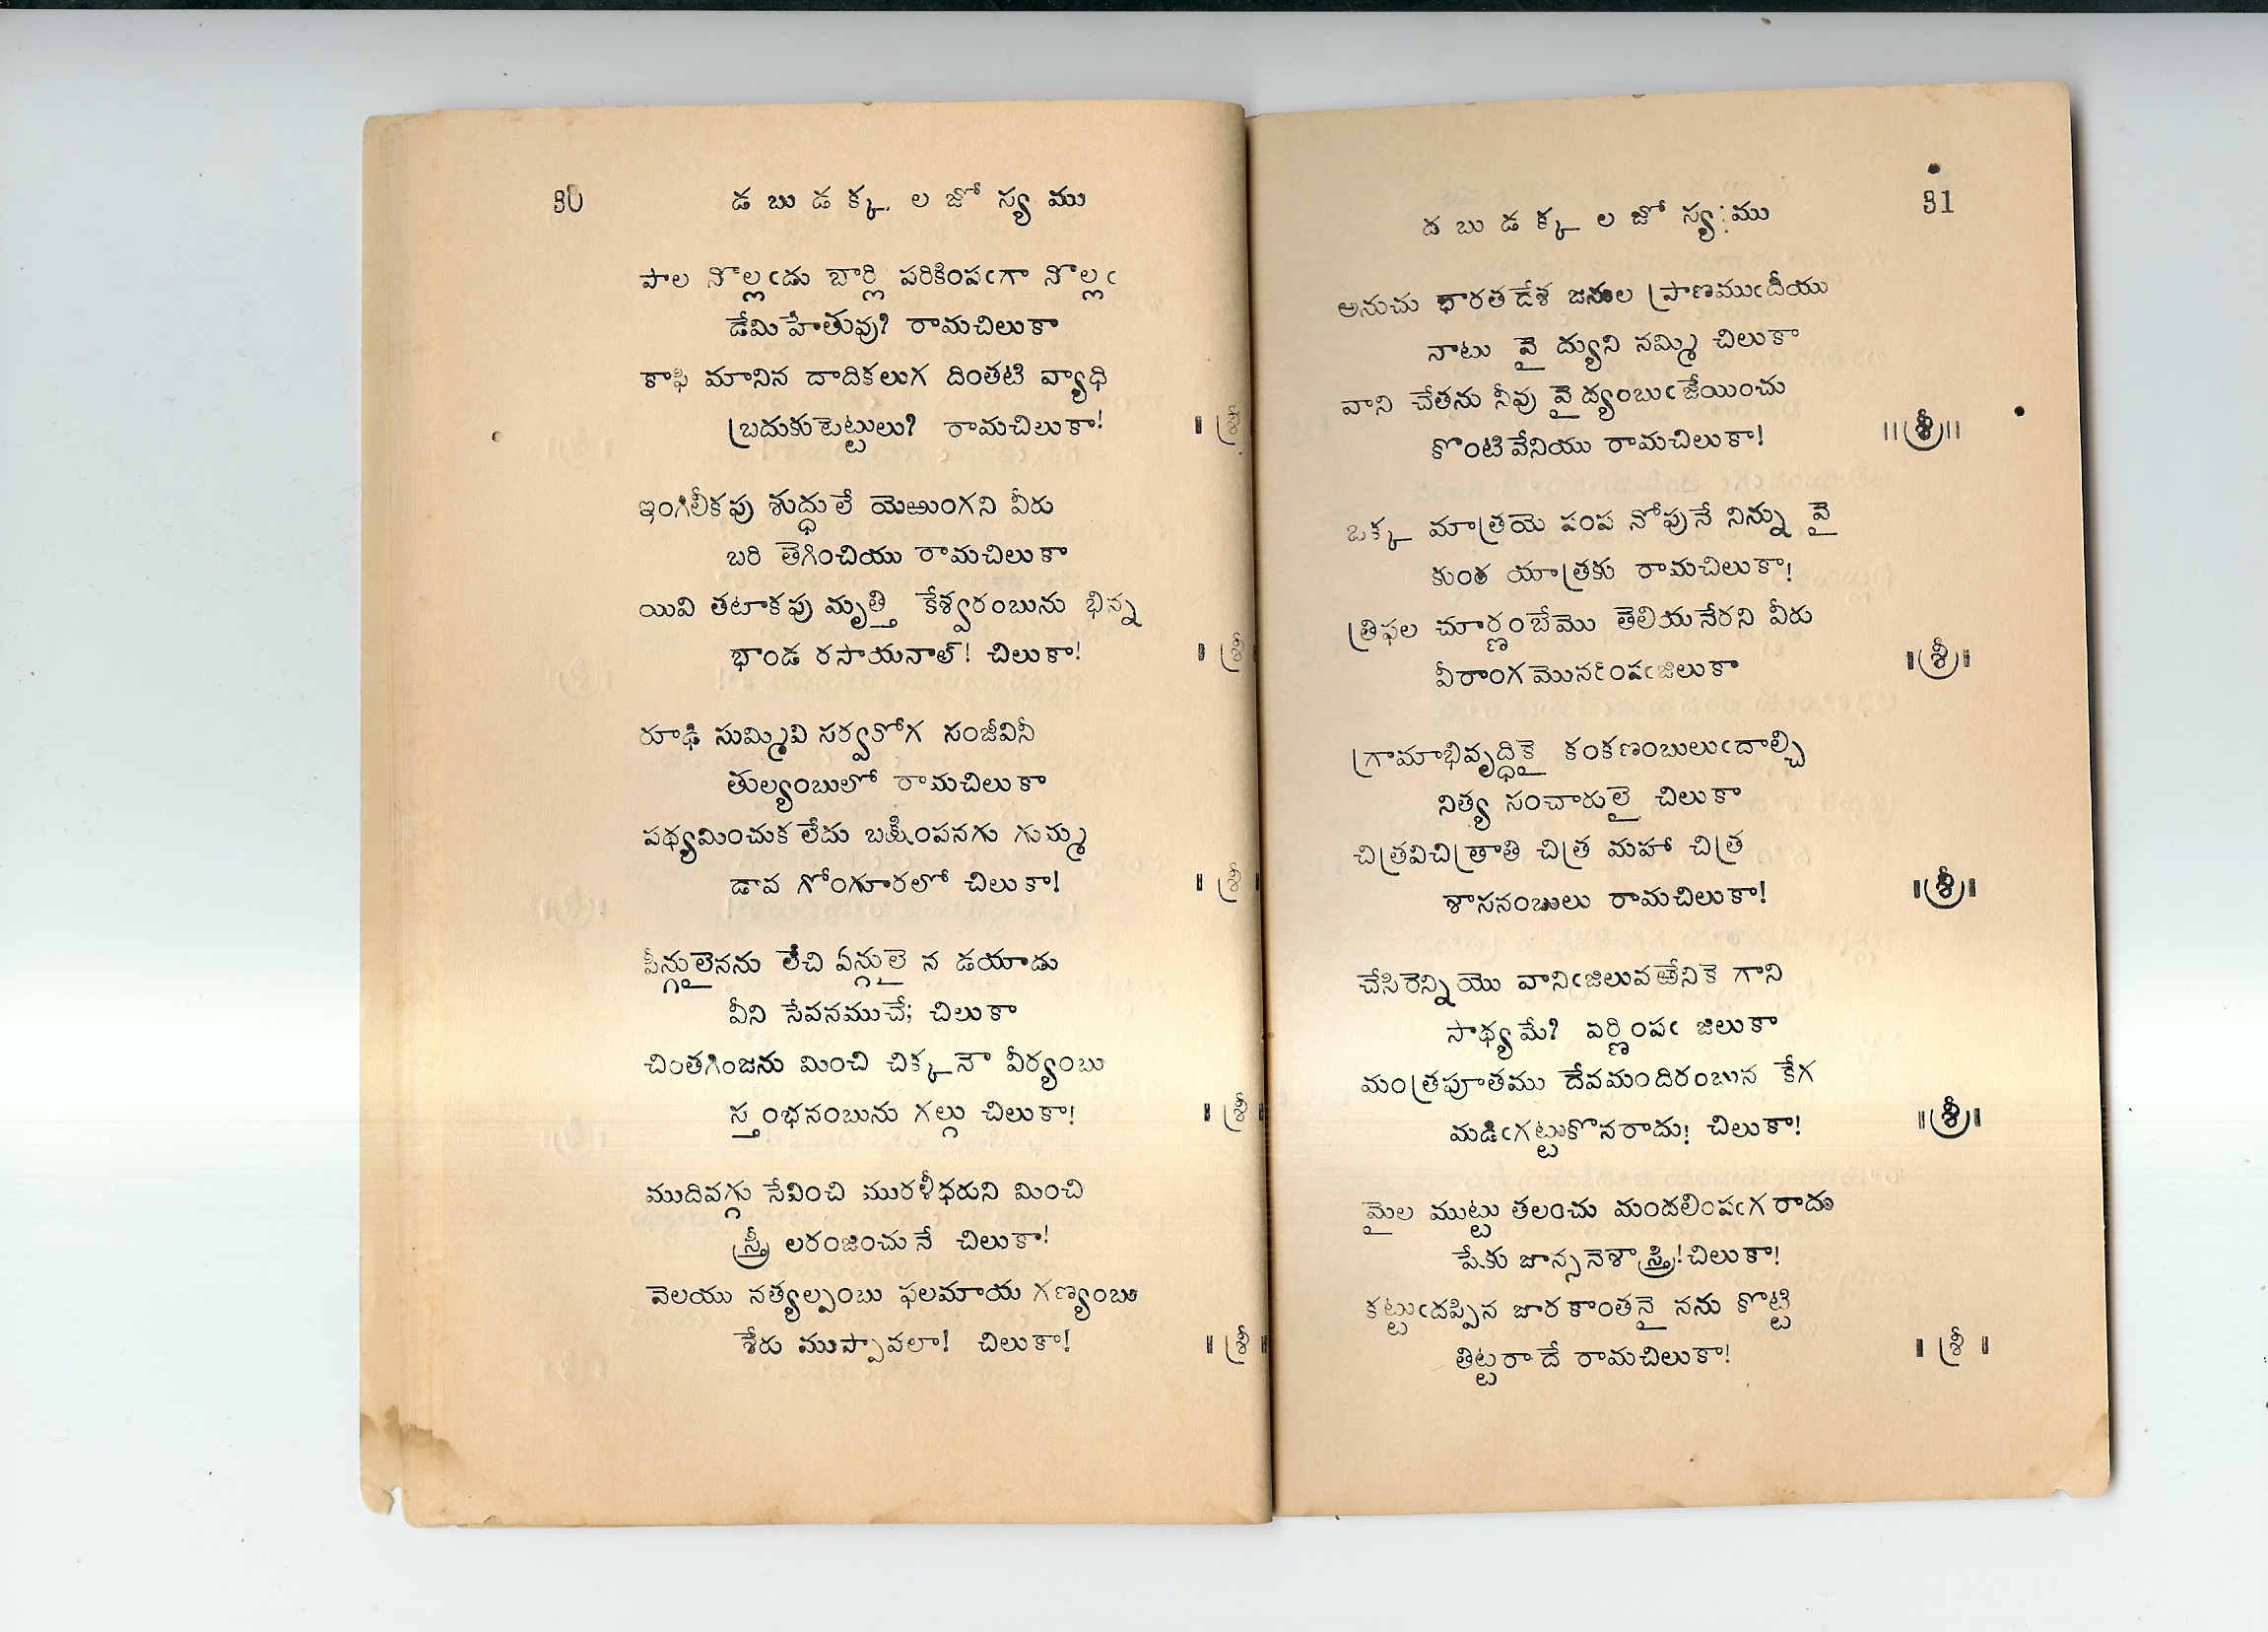 30
డ బు డ క్క ల జో స్య ము
పాల నొల్లఁడు బార్లి పరికింపఁగా నొల్లఁ
డేమి హేతువు? రామచిలుకా
కాఫి మానిన దాదికలుగ దింతటి వ్యాధి
బ్రదుకుటెట్టులు? రామచిలుకా! । శ్రీ
ఇంగిలీకపు శుద్ధులే యెఱుంగని వీరు
బరి తెగించియు రామచిలుకా
యివి తటాకపు మృత్తి కేశ్వరంబును భిన్న
భాండ రసాయనాల్! చిలుకా! । శ్రీ
రూఢి సుమ్మివి సర్వరోగ సంజీవినీ
తుల్యంబులో రామచిలుకా
పథ్యమించుక లేదు బక్షింపనగు గుమ్మ
డావ గోంగూరలో చిలుకా! । శ్రీ ।
పీన్గులైనను లేచి ఏన్గులై న డయాడు
వీని సేవనముచే; చిలుకా
చింతగింజను మించి చిక్కనౌ వీర్యంబు
స్తంభనంబును గల్గు చిలుకా! । శ్రీ ।
ముదివగ్గు సేవించి మురళీధరుని మించి
స్త్రీ లరంజించునే చిలుకా!
వెలయు నత్యల్పంబు ఫలమాయ గణ్యంబు
శేరు ముప్పావలా! చిలుకా! ॥ శ్రీ ।
డ బు డ క్క ల జో స్య ము
31
అనుచు భారతదేశ జనుల ప్రాణముఁదీయు
నాటు వై ద్యుని నమ్మి చిలుకా
వాని చేతను నీవు వై ద్యంబుఁజేయించు
కొంటివేనియు రామచిలుకా! ॥శ్రీ॥
ఒక్క మాత్రయె పంప నోపునే నిన్ను వై
కుంఠ యాత్రకు రామచిలుకా!
త్రిఫల చూర్ణంబేమొ తెలియనేరని వీరు
వీరాంగమొనరింపఁజిలుకా ।శ్రీ।
గ్రామాభివృద్ధికై కంకణంబులుఁదాల్చి
నిత్య సంచారులై చిలుకా
చిత్రవిచిత్రాతి చిత్ర మహా చిత్ర
శాసనంబులు రామచిలుకా! ।శ్రీ।
చేసిరెన్నియొ వానిఁజిలువఱేనికె గాని
సాధ్యమే? వర్ణింపఁ జిలుకా
మంత్రపూతము దేవమందిరంబున కేగ
మడిఁగట్టుకొనరాదు! చిలుకా! ॥శ్రీ।
మైల ముట్టు తలంచు మందలింపఁగ రాదు
పేకు జాన్సనెశాస్త్రి! చిలుకా!
కట్టుఁదప్పిన జారకాంతనై నను కొట్టి
తిట్టరాదే రామచిలుకా! । శ్రీ ।